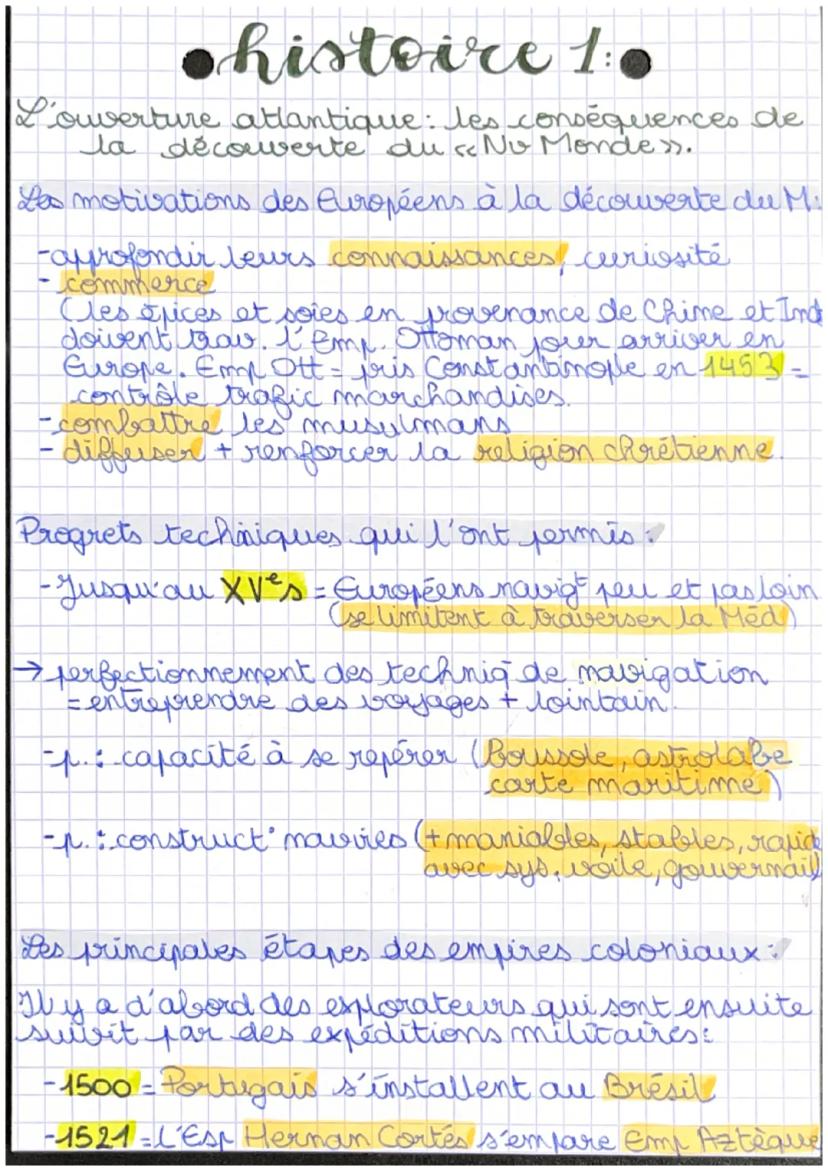 histoire 1:
L'ouverture atlantique: les conséquences de
la découverte du «Nv Monde».
Les motivations des Européens à la découverte du M:
-approfondir leurs connaissances, curiosité
- commerce
(les épices et soies en provenance de Chine et Ind
doivent trav. l'Emp. Ottoman pour arriver en
Europe. Emp Ott = pris Constantinople en 1453 =
contrôle trafic marchandises.
-combattre les musulmans
- diffuser + renforcer la religion chrétienne.
Progrets techniques qui l'ont permis:
-Jusqu'au XVe s = Européens navigt peu et pas loin
(se limitent à traverser la Méd)
→ perfectionnement des techniq de navigation
= entreprendre des voyages + lointain.
-p.: capacité à se repérer (boussole, astrolabe
carte maritime)
-p.: construct° navires (+ maniables, stables, rapid
avec sys. voile, gouvernail
Les principales étapes des empires coloniaux:
Il y a d'abord des explorateurs qui sont ensuite
suivit par des expéditions militaires:
-1500 = Portugais s'installent au Brésil
-1521 = L'Esp Hernan Cortés s'empare Emp Aztèque